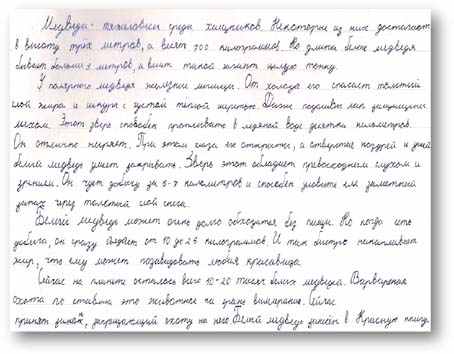 Медведи - тяжеловесы среди хищников. Некоторые из них достигают
в высоту трёх метров, а весят 700 килограммов. Но длина белого медведя
бывает больше 3 метров, а весит такой гигант целую тонну.
У полярного медведя железные мышцы. От холода его спасает толстый
слой жира и шкура с густой тёплой шерстью. Даже подошвы лап защищены
мехом. Этот зверь способен проплывать в ледяной воде десятки километров.
Он отлично ныряет. При этом глаза его открыты, а отверстие ноздрей и ушей
белый медведь умеет зажимать. Зверь этот обладает превосходным слухом и
зрением. Он чует добычу за 5-7 километров и способен уловить еле заметный
запах через толстый слой снега.
Белый медведь может очень долго обходится без пищи. Но когда есть
добыча, он сразу съедает от 10 до 25 килограммов. И так быстро накапливает
жир, что ему может позавидовать любая красавица.
Сейчас на планете осталось всего 10-20 тысяч белых медведей. Варварская
охота по ставила это животное на грань вымирания. Сейчас
принят закон, запрещающий охоту на него. Белый медведь занесён в Красную книгу.